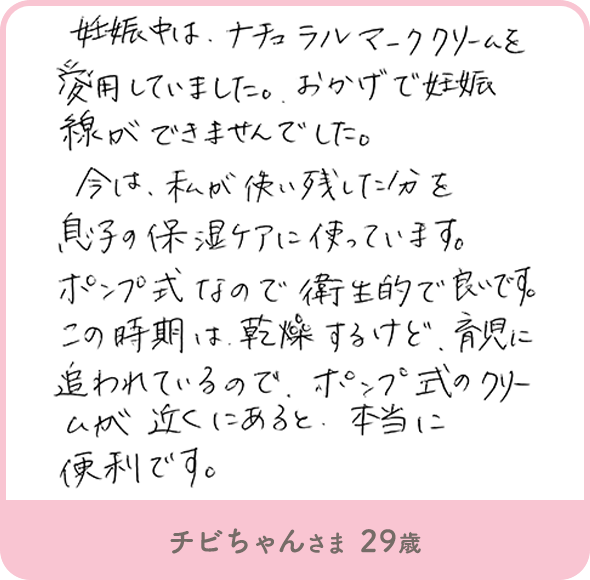 妊娠中は、ナチュラルマーククリームを
愛用していました。おかげで妊娠
線ができませんでした。
今は、私が使い残した分を
息子の保湿ケアに使っています。
ポンプ式なので衛生的で良いです。
この時期は乾燥するけど、育児に
追われているので、ポンプ式のクリー
ムが近くにあると、本当に
便利です。
チビちゃんさま 29歳